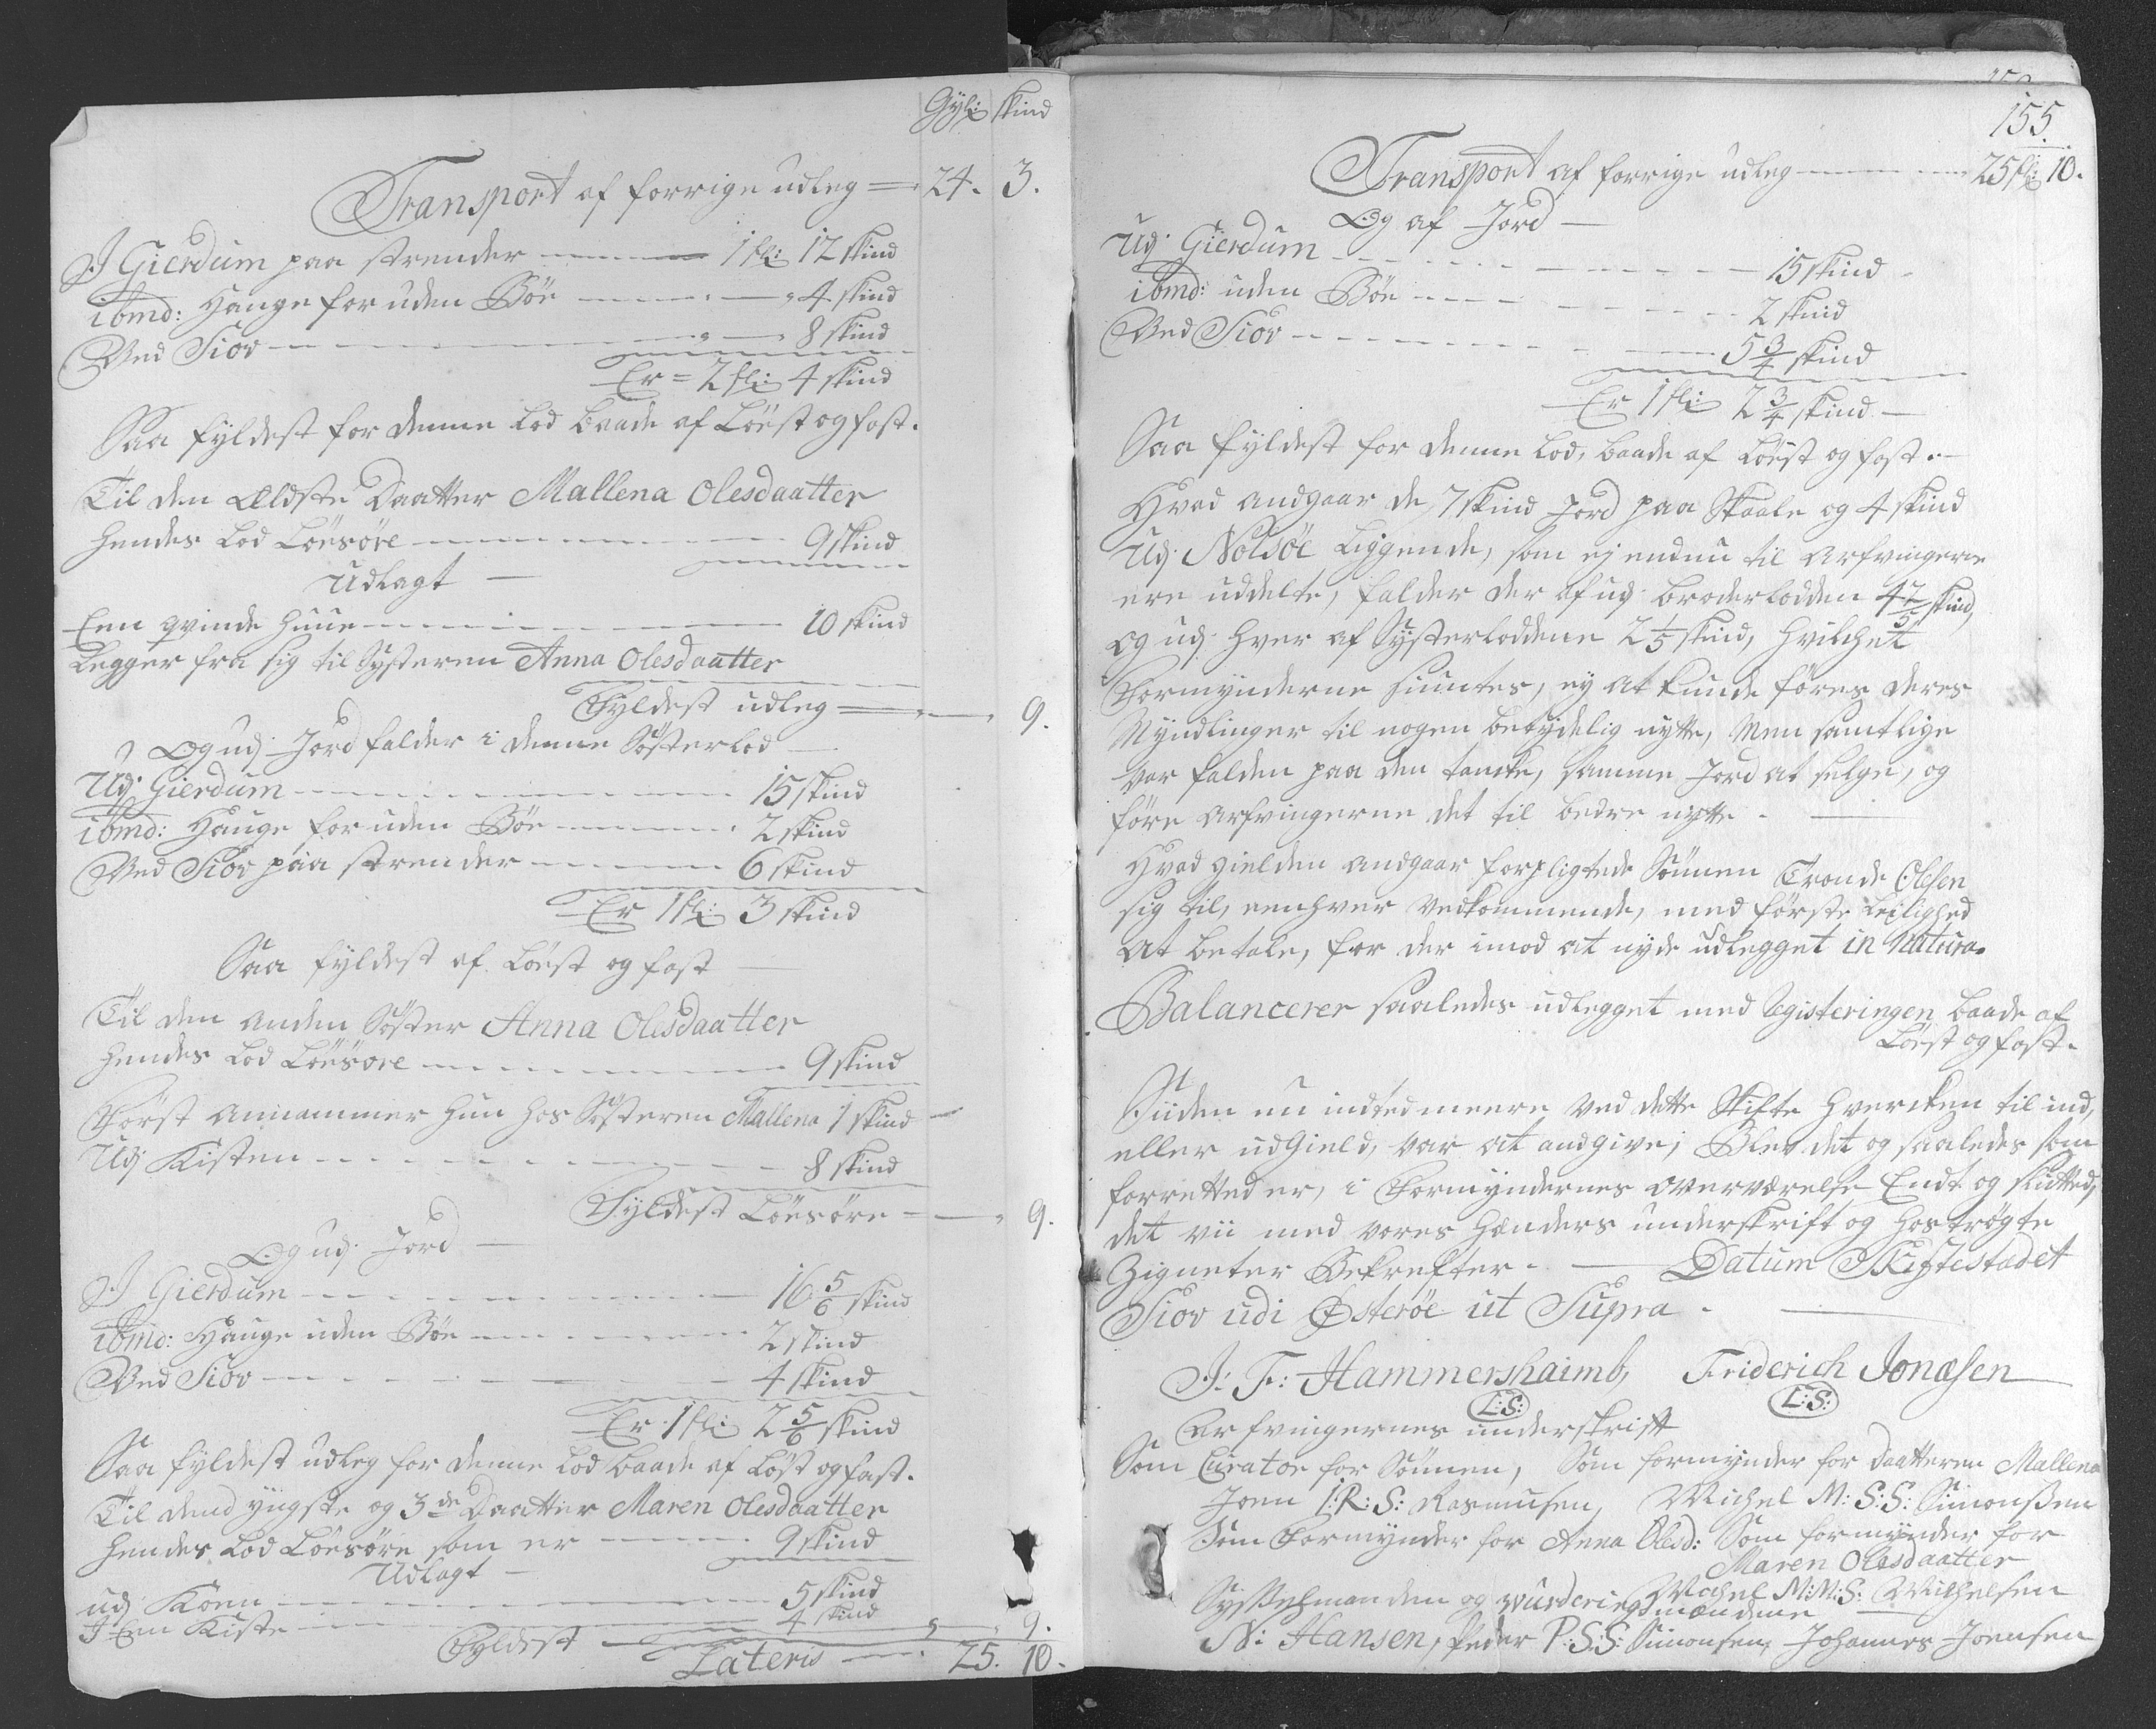 Gyl: skind
Transport af forrige udleg 24. 3.
I Gierdum paa strender 1 fl: 12 skind
ibmd: Hauge for uden Böe 4 skind
Ved Siov 8 skind
Er = 2 fl: 4 skind
Saa fyldest for denne Lod baade af Löest og fast.
Til den Eldste Daatter Mallena Olesdaatter
hendes Lod Löesöre 9 skind
Udlagt
Een qvinde huue 10 skind
Legger fra sig til Systeren Anna Olesdaatter
Fyldest udleg 9.
Og udj Jord falder i denne Sösterlod
Udj Gierdum 15 skind
ibmd: Hauge for uden Böe 2 skind
Ved Siov paa strender 6 skind
Er 1 fl: 3 skind
Saa fyldest af Löest og fast
Til den anden Söster Anna Olesdaatter
hendes Lod Löesöre 9 skind
Först annammer hun hos Sösteren Mallena 1 skind
Udj Kisten 8 skind
Fyldest Löesöre 9.
Og udj Jord
I Gierdum 16 5/6 skind
ibmd: Hauge uden Böe 2 skind
Ved Siov 4 skind
Er 1 fl: 2 5/6 skind
Saa fyldest udleg for denne Lod baade af Löst og fast.
Til dend yngste og 3de Daatter Maren Olesdaatter
hendes Lod Löesöre som er 9 skind
Udlagt
udj Koen 5 skind
I Een Kiste 4 skind
Fyldest 9.
Lateris 25. 10.
155.
Transport af forrige udleg 25 fl: 10.
Og af Jord
Udj Gierdum 15 skind
ibmd: uden Böe 2 skind
Ved Siov 5 3/4 skind
Er 1 fl: 2 3/4 skind
Saa fyldest for denne Lod, baade af Löest og fast.
Hvad andgaar de 7 skind Jord paa Skaale og 4 skind
Udj Nolsöe Liggende, som ej endnu til Arfvingerne
ere uddelte, falder der af udj broderlodden 4 2/5 skind,
og udj hver af Systerloddene 2 1/5 skind, hvilchet
Formynderne siuntes, ey at kunde föres deres
Myndlinger til nogen betydelig nytte, Men samtlige
var falden paa den tancke, samme Jord at selge, og
före Arfvingerne det til bedre nytte.
Hvad gielden andgaar forpligtede Sönnen Tronde Olesen
sig til, eenhver vedkommende, med förste Leilighed
at betale, for der imod at nyde udlegget in Natura.
Balancerer saaledes udlegget med Registeringen baade af
Löest og fast.
Siiden nu indted meere ved dette Skifte hvercken til ind,
eller udGield, var at andgive; Blev det og saaledes som
forretted er, i Formyndernes overværelse Endt og slutted,
det vii med vores hænders underskrift og hoströgte
Zigneter Bekrefter. Datum Skiftestadet
Siov udi Österöe ut Supra.
J: F: Hammershaimb, Friderich Jonæsen
L:S: L:S:
Arfvingernes underskrift
Som Curator for Sönnen, Som formynder for Daatteren Mallena
Joen J:R:S: Rasmusen, Michel M:S:S: Simonsen
Som Formynder for Anna Olesd: Som formynder for
Maren Olesdaatter
Michel M:M:S: Michelsen
Sysselmanden og Vurderingsmændene
N: Hansen, Peder P:S:S: Simonsen, Johannes Joensen